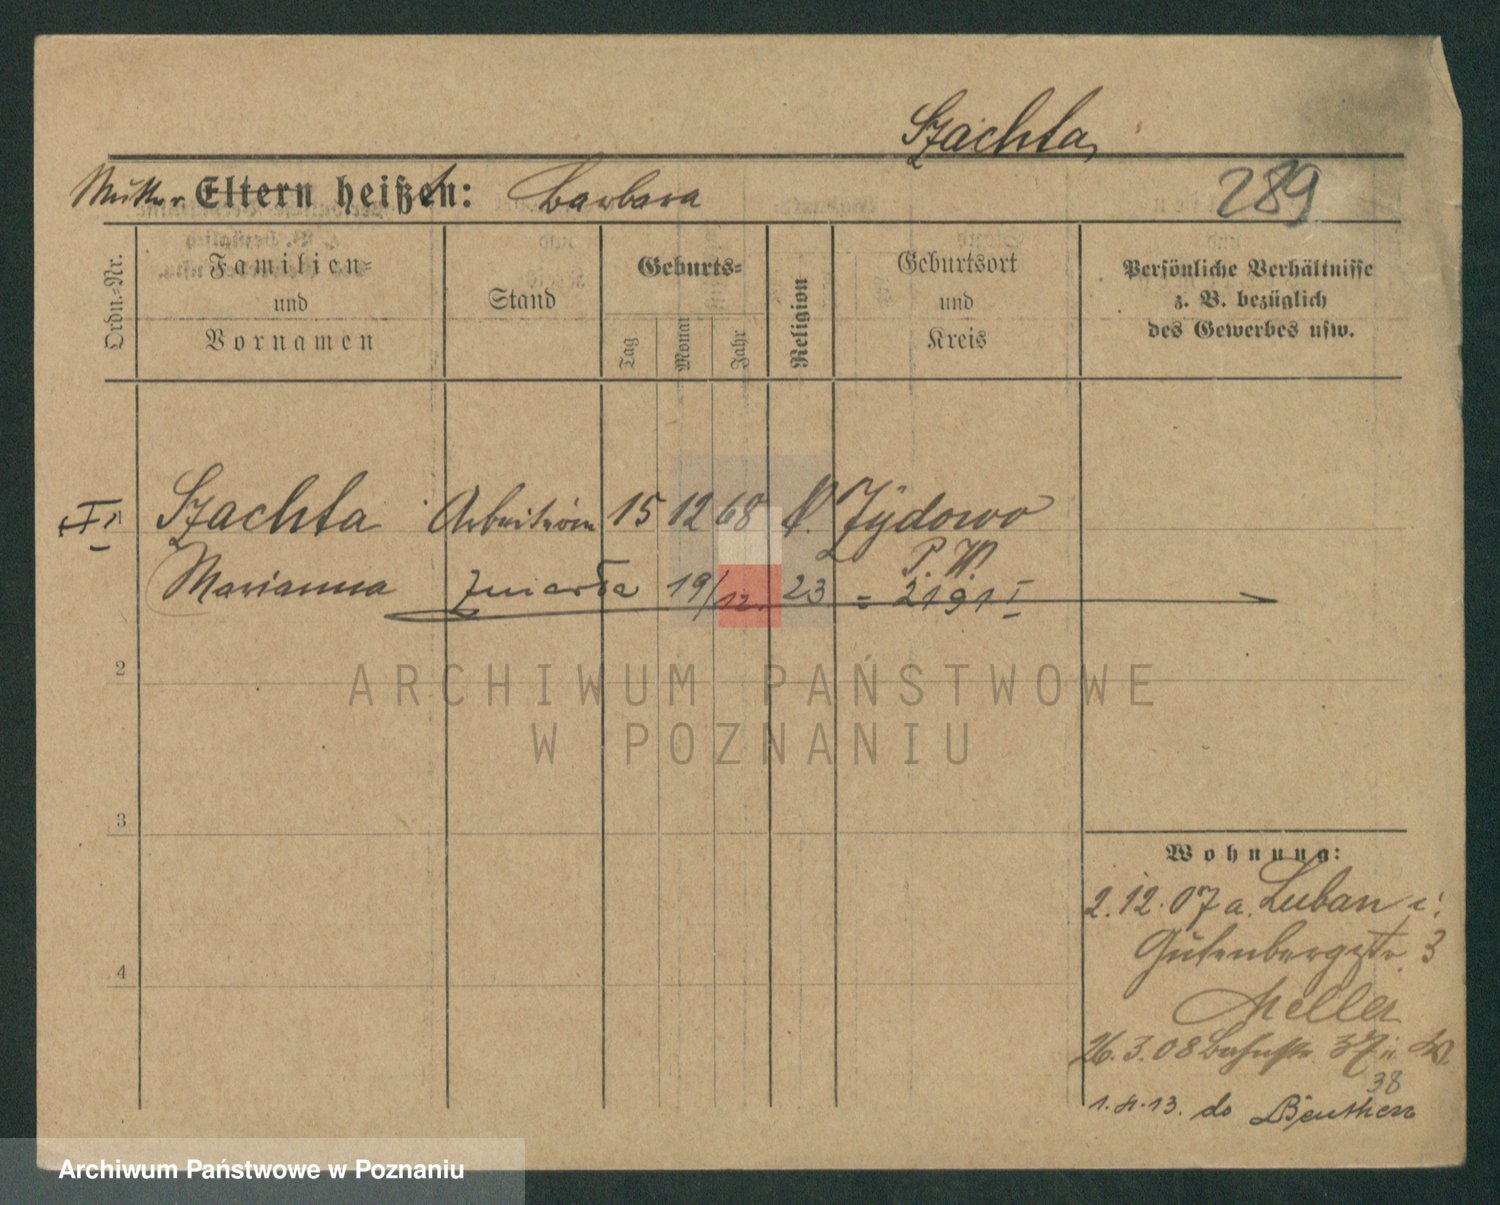 Szachta
289
Mutter Eltern heißen: Barbara
Ordn.-Nr.
Familien-
und
Vornamen
Stand
Geburts-
Tag
Monat
Jahr
Religion
Geburtsort
und
Kreis
Persönliche Verhältnisse
z. B. bezüglich
des Gewerbes usw.
I
Szachta Arbeiterin 15 12 68 k. Żydowo
P. W.
Marianna zmarła 19/12. 23 = 2191 I
2
ARCHIWUM PAŃSTWOWE
W POZNANIU
3
Wohnung:
2.12.07 a. Luban
Gutenbergstr. 3
Meller
4
26.3.08 Bahnstr. 37
38
1.4.13. do Beuthen
Archiwum Państwowe w Poznaniu